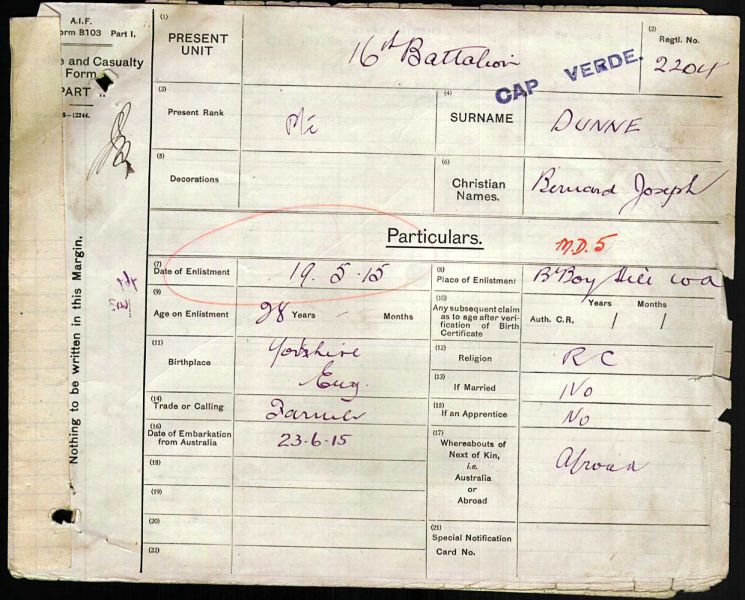 A.I.F.
orm B103 Part I.
e and Casualty
Form
PART
(1)
PRESENT
UNIT
16th Battalion
(2)
Regtl. No.
2204
CAP VERDE.
(3)
Present Rank
Pte
(4)
SURNAME
DUNNE
(5)
Decorations
(6)
Christian
Names.
Bernard Joseph
Particulars.
M.D. 5
(7)
Date of Enlistment
19. 5. 15
(8)
Place of Enlistment
B'Boy Hill W A
(9)
Age on Enlistment
28 Years Months
(10)
Any subsequent claim
as to age after veri-
fication of Birth
Certificate
Years Months
Auth. C.R. / /
(11)
Birthplace
Yorkshire
Eng.
(12)
Religion
R C
(13)
If Married
No
(14)
Trade or Calling
Farmer
(15)
If an Apprentice
No
(16)
Date of Embarkation
from Australia
23-6-15
(17)
Whereabouts of
Next of Kin,
i.e.
Australia
or
Abroad
Abroad
(18)
(19)
(20)
(21)
Special Notification
Card No.
(22)
Nothing to be written in this Margin.